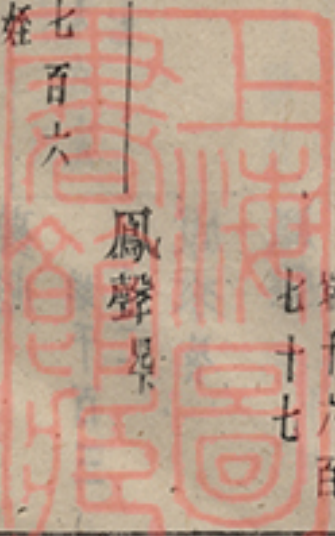 七十七
鳳聲
七百六
姪
上海圖
書館藏